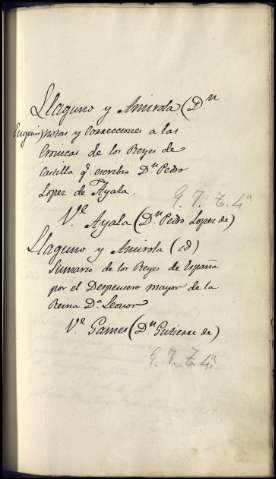 Llaguno y Amirola (Dn
Eugenio) notas y correcciones a las
Cronicas de los Reyes de
Castilla q̃ escribio Dn Pedro
Lopez de Ayala.
G. 7. Z. 4a
Ve. Ayala (Dn Pedro Lopez de)
Llaguno y Amirola (id)
Sumario de los Reyes de España
por el Despensero mayor de la
Reina Da Leonor
Ve. Games (Dn Gutierre de)
G. 7. Z. 4a